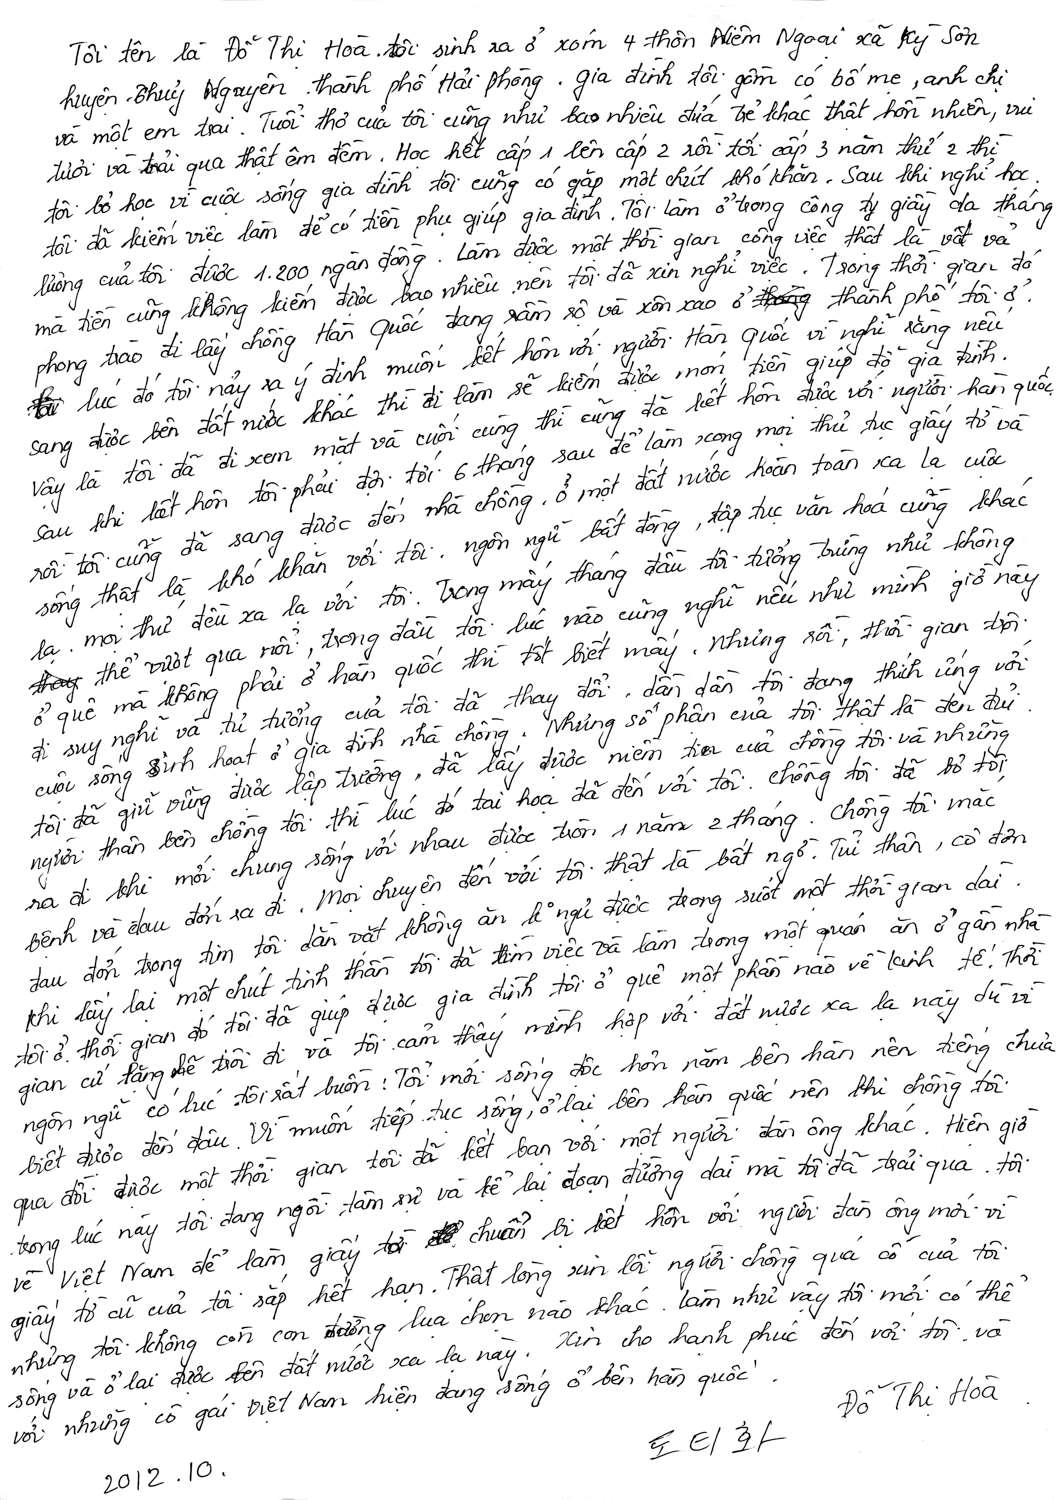 Tôi tên là Đỗ Thị Hoà. tôi sinh ra ở xóm 4 thôn Niêm Ngoại xã Kỳ Sơn
huyện. Thuỷ Nguyên. thành phố Hải Phòng. gia đình tôi gồm có bố mẹ, anh chị
và một em trai. Tuổi thơ của tôi cũng như bao nhiêu đứa trẻ khác thật hồn nhiên, vui
tươi và trải qua thật êm đềm. Học hết cấp 1 lên cấp 2 rồi tới cấp 3 năm thứ 2 thì
tôi bỏ học vì cuộc sống gia đình tôi cũng có gặp một chút khó khăn. Sau khi nghỉ học.
tôi đã kiếm việc làm để có tiền phụ giúp gia đình. Tôi làm ở trong công ty giầy da tháng
lương của tôi được 1.200 ngàn đồng. Làm được một thời gian công việc thật là vất vả
mà tiền cũng không kiếm được bao nhiêu nên tôi đã xin nghỉ việc. Trong thời gian đó
phong trào đi lấy chồng Hàn Quốc đang rầm rộ và xôn xao ở thành phố tôi ở.
lúc đó tôi nảy ra ý định muốn kết hôn với người Hàn Quốc vì nghĩ rằng nếu
sang được bên đất nước khác thì đi làm sẽ kiếm được món tiền giúp đỡ gia đình.
Vậy là tôi đã đi xem mặt và cuối cùng thì cũng đã kết hôn được với người hàn quốc.
Sau khi kết hôn tôi phải đợi tới 6 tháng sau để làm xong mọi thủ tục giấy tờ và
rồi tôi cũng đã sang được đến nhà chồng. ở một đất nước hoàn toàn xa lạ cuộc
sống thật là khó khăn với tôi. ngôn ngữ bất đồng, tập tục văn hoá cũng khác
lạ. mọi thứ đều xa lạ với tôi. Trong mấy tháng đầu tôi tưởng trừng như không
thể vượt qua nổi, trong đầu tôi lúc nào cũng nghĩ nếu như mình giờ này
ở quê mà không phải ở hàn quốc thì tốt biết mấy. Nhưng rồi, thời gian trôi
đi suy nghĩ và tư tưởng của tôi đã thay đổi. dần dần tôi đang thích ứng với
cuộc sống sinh hoạt ở gia đình nhà chồng. Nhưng số phận của tôi thật là đen đủi.
tôi đã giữ vững được lập trường, đã lấy được niềm tin của chồng tôi và những
người thân bên chồng tôi thì lúc đó tai hoạ đã đến với tôi. chồng tôi đã bỏ tôi
ra đi khi mới chung sống với nhau được tròn 1 năm 2 tháng. Chồng tôi mắc
bệnh và đau đớn ra đi. Mọi chuyện đến với tôi thật là bất ngờ. Tủi thân, cô đơn
đau đớn trong tim tôi dằn vặt không ăn k° ngủ được trong suốt một thời gian dài.
khi lấy lại một chút tinh thần tôi đã tìm việc và làm trong một quán ăn ở gần nhà
tôi ở. thời gian đó tôi đã giúp được gia đình tôi ở quê một phần nào về kinh tế. Thời
gian cứ lặng lẽ trôi đi và tôi cảm thấy mình hợp với đất nước xa lạ này dù vì
ngôn ngữ có lúc tôi rất buồn. Tôi mới sống độc hơn năm bên hàn nên tiếng chưa
biết được đến đâu. Vì muốn tiếp tục sống, ở lại bên hàn quốc nên khi chồng tôi
qua đời được một thời gian tôi đã kết bạn với một người đàn ông khác. Hiện giờ
trong lúc này tôi đang ngồi tâm sự và kể lại đoạn đường dài mà tôi đã trải qua. tôi
về Việt Nam để làm giấy tờ chuẩn bị kết hôn với người đàn ông mới vì
giấy tờ cũ của tôi sắp hết hạn. Thật lòng xin lỗi người chồng quá cố của tôi
nhưng tôi không còn con đường lựa chọn nào khác. làm như vậy tôi mới có thể
sống và ở lại được bên đất nước xa lạ này. Xin cho hạnh phúc đến với tôi và
với những cô gái Việt Nam hiện đang sống ở bên hàn quốc.
Đỗ Thị Hoà
도티화
2012.10.